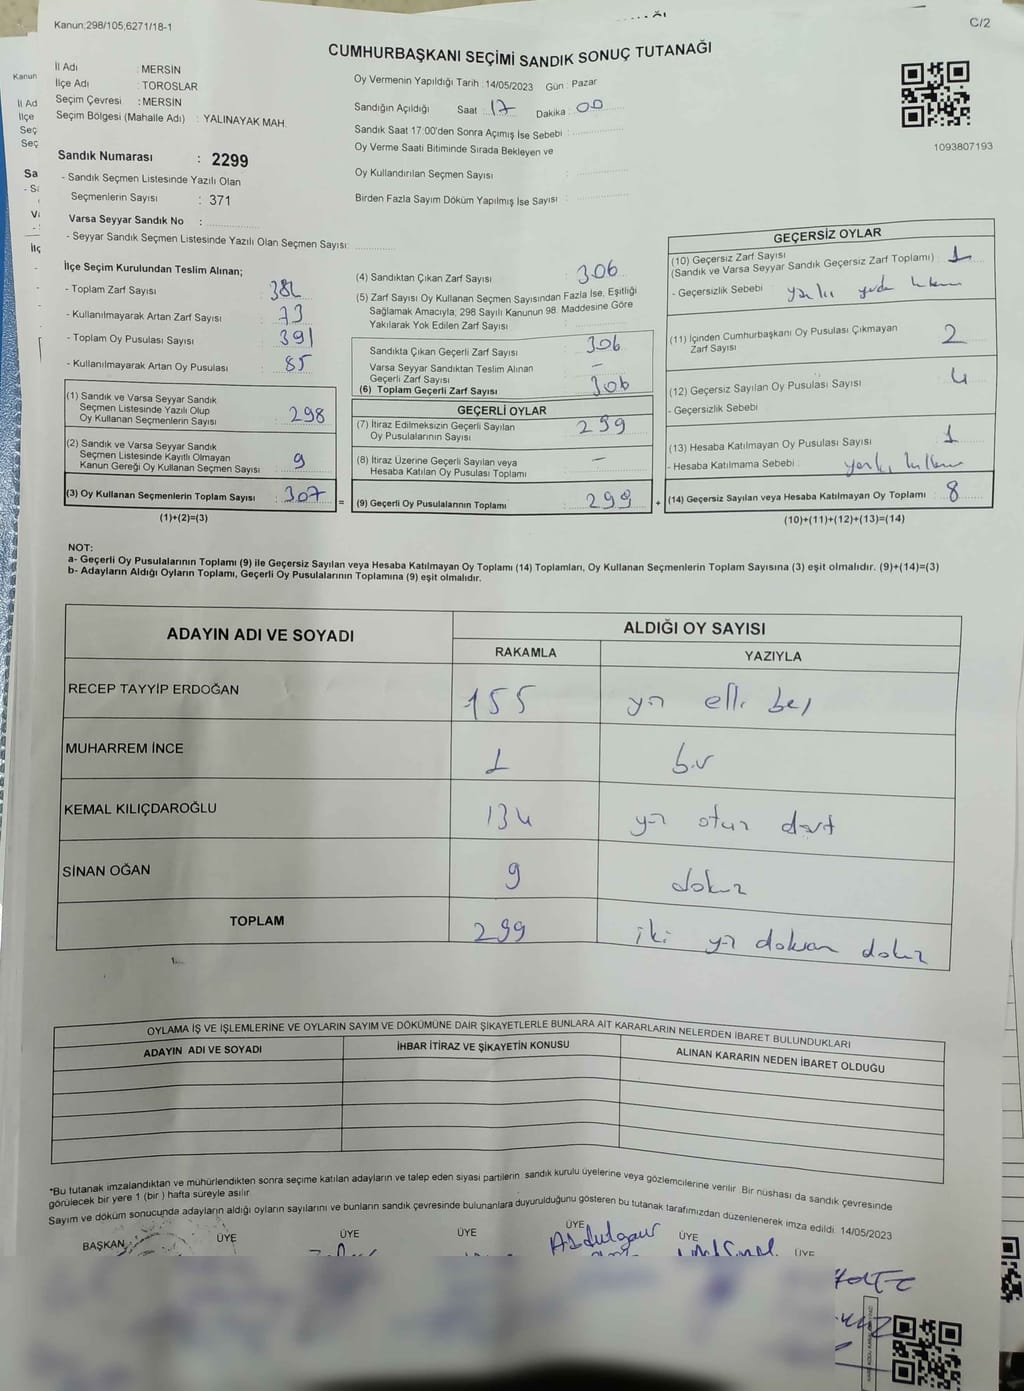 Kanun;298/105,6271/18-1
C/2
CUMHURBAŞKANI SEÇİMİ SANDIK SONUÇ TUTANAĞI
İl Adı : MERSİN
İlçe Adı : TOROSLAR
Seçim Çevresi : MERSİN
Seçim Bölgesi (Mahalle Adı) : YALINAYAK MAH.
Sandık Numarası : 2299
- Sandık Seçmen Listesinde Yazılı Olan
Seçmenlerin Sayısı : 371
Varsa Seyyar Sandık No :
- Seyyar Sandık Seçmen Listesinde Yazılı Olan Seçmen Sayısı:
Oy Vermenin Yapıldığı Tarih : 14/05/2023 Gün : Pazar
Sandığın Açıldığı Saat : 17 Dakika : 00
Sandık Saat 17:00'den Sonra Açımış İse Sebebi :
Oy Verme Saati Bitiminde Sırada Bekleyen ve
Oy Kullandırılan Seçmen Sayısı :
Birden Fazla Sayım Döküm Yapılmış İse Sayısı :
1093807193
İlçe Seçim Kurulundan Teslim Alınan;
- Toplam Zarf Sayısı : 38
- Kullanılmayarak Artan Zarf Sayısı : 73
- Toplam Oy Pusulası Sayısı : 391
- Kullanılmayarak Artan Oy Pusulası : 85
(1) Sandık ve Varsa Seyyar Sandık
Seçmen Listesinde Yazılı Olup
Oy Kullanan Seçmenlerin Sayısı : 298
(2) Sandık ve Varsa Seyyar Sandık
Seçmen Listesinde Kayıtlı Olmayan
Kanun Gereği Oy Kullanan Seçmen Sayısı : 9
(3) Oy Kullanan Seçmenlerin Toplam Sayısı : 307
(1)+(2)=(3)
(4) Sandıktan Çıkan Zarf Sayısı : 306
(5) Zarf Sayısı Oy Kullanan Seçmen Sayısından Fazla İse, Eşitliği
Sağlamak Amacıyla; 298 Sayılı Kanunun 98. Maddesine Göre
Yakılarak Yok Edilen Zarf Sayısı :
Sandıkta Çıkan Geçerli Zarf Sayısı : 306
Varsa Seyyar Sandıktan Teslim Alınan
Geçerli Zarf Sayısı : –
(6) Toplam Geçerli Zarf Sayısı : 306
GEÇERLİ OYLAR
(7) İtiraz Edilmeksizin Geçerli Sayılan
Oy Pusulalarının Sayısı : 299
(8) İtiraz Üzerine Geçerli Sayılan veya
Hesaba Katılan Oy Pusulası Toplamı : –
= (9) Geçerli Oy Pusulalarının Toplamı : 299
GEÇERSİZ OYLAR
(10) Geçersiz Zarf Sayısı
(Sandık ve Varsa Seyyar Sandık Geçersiz Zarf Toplamı) : 1
- Geçersizlik Sebebi :
(11) İçinden Cumhurbaşkanı Oy Pusulası Çıkmayan
Zarf Sayısı : 2
(12) Geçersiz Sayılan Oy Pusulası Sayısı : 4
- Geçersizlik Sebebi
(13) Hesaba Katılmayan Oy Pusulası Sayısı : 1
- Hesaba Katılmama Sebebi :
+ (14) Geçersiz Sayılan veya Hesaba Katılmayan Oy Toplamı : 8
(10)+(11)+(12)+(13)=(14)
NOT:
a- Geçerli Oy Pusulalarının Toplamı (9) ile Geçersiz Sayılan veya Hesaba Katılmayan Oy Toplamı (14) Toplamları, Oy Kullanan Seçmenlerin Toplam Sayısına (3) eşit olmalıdır. (9)+(14)=(3)
b- Adayların Aldığı Oyların Toplamı, Geçerli Oy Pusulalarının Toplamına (9) eşit olmalıdır.
ADAYIN ADI VE SOYADI
ALDIĞI OY SAYISI
RAKAMLA YAZIYLA
RECEP TAYYİP ERDOĞAN 155 yüz elli beş
MUHARREM İNCE 1 bir
KEMAL KILIÇDAROĞLU 134 yüz otuz dört
SİNAN OĞAN 9 dokuz
TOPLAM 299 iki yüz doksan dokuz
OYLAMA İŞ VE İŞLEMLERİNE VE OYLARIN SAYIM VE DÖKÜMÜNE DAİR ŞİKAYETLERLE BUNLARA AİT KARARLARIN NELERDEN İBARET BULUNDUKLARI
ADAYIN ADI VE SOYADI İHBAR İTİRAZ VE ŞİKAYETİN KONUSU ALINAN KARARIN NEDEN İBARET OLDUĞU
*Bu tutanak imzalandıktan ve mühürlendikten sonra seçime katılan adayların ve talep eden siyasi partilerin sandık kurulu üyelerine veya gözlemcilerine verilir. Bir nüshası da sandık çevresinde
görülecek bir yere 1 (bir ) hafta süreyle asılır.
Sayım ve döküm sonucunda adayların aldığı oyların sayılarını ve bunların sandık çevresinde bulunanlara duyurulduğunu gösteren bu tutanak tarafımızdan düzenlenerek imza edildi. 14/05/2023
BAŞKAN ÜYE ÜYE ÜYE ÜYE ÜYE ÜYE